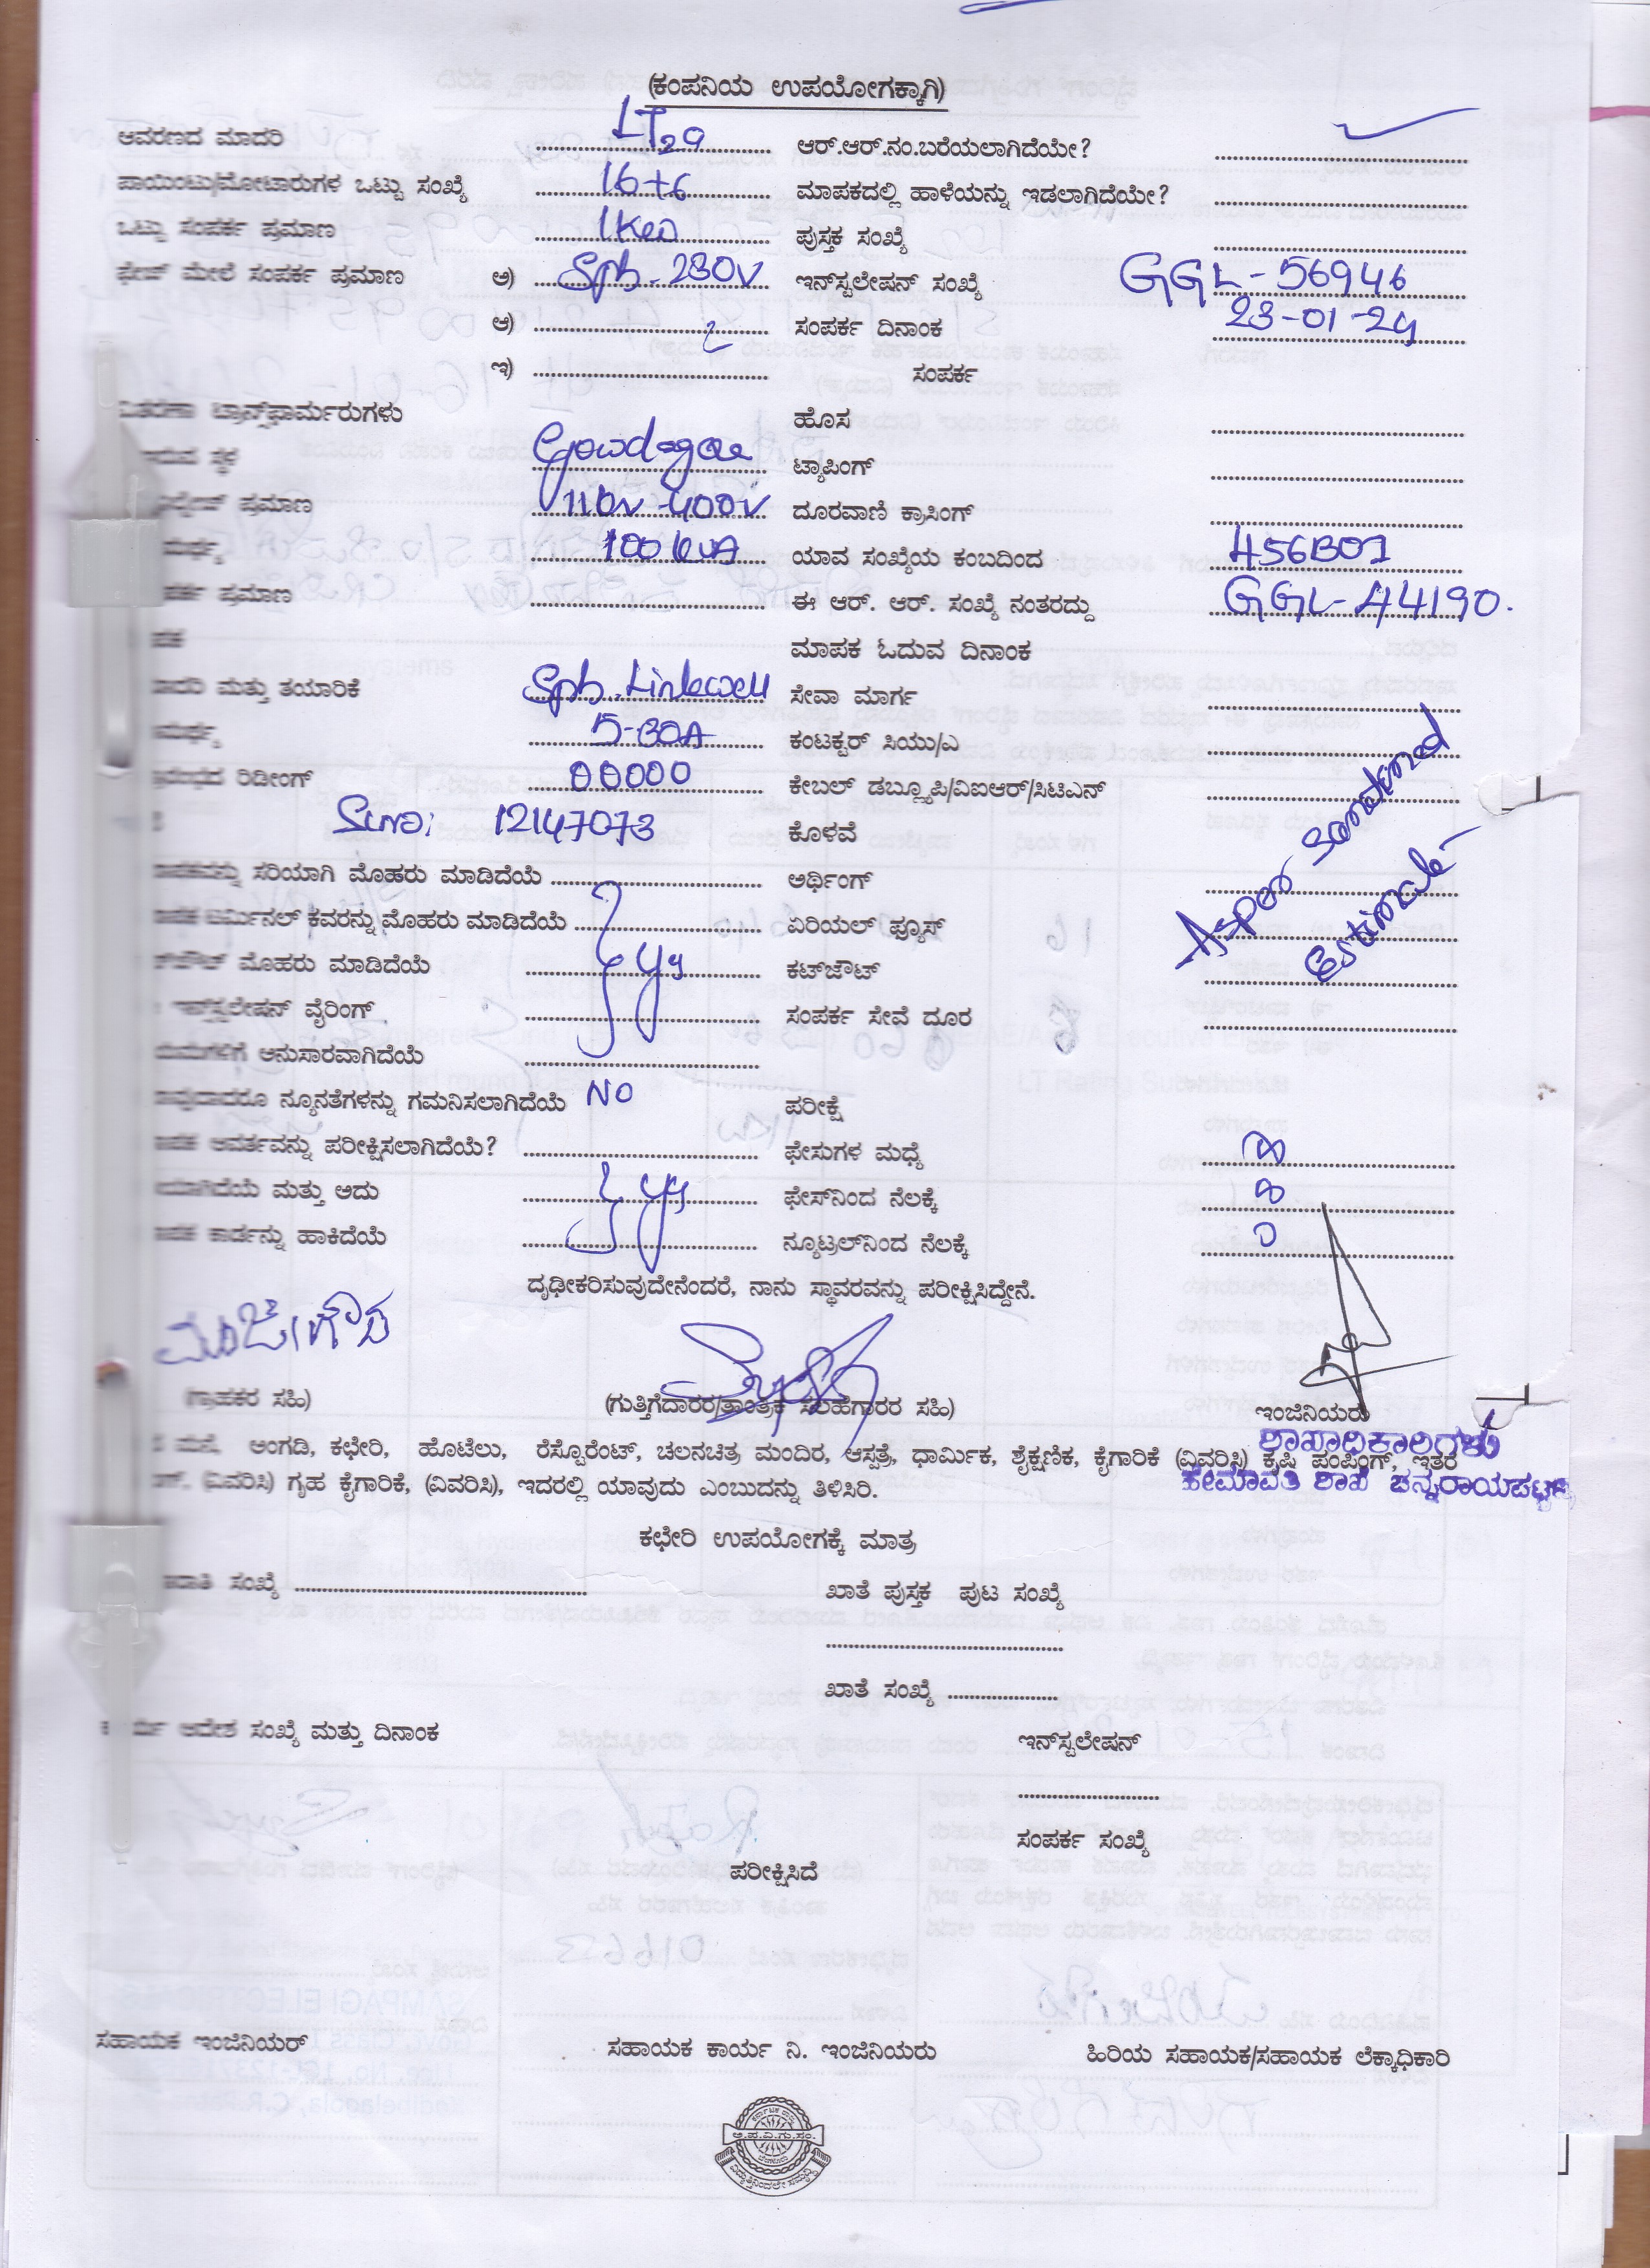 (ಕಂಪನಿಯ ಉಪಯೋಗಕ್ಕಾಗಿ)
ಆವರಣದ ಮಾದರಿ ಆರ್.ಆರ್.ನಂ.ಬರೆಯಲಾಗಿದೆಯೇ?
ಪಾಯಿಂಟು/ಮೋಟಾರುಗಳ ಒಟ್ಟು ಸಂಖ್ಯೆ 16+6 ಮಾಪಕದಲ್ಲಿ ಹಾಳೆಯನ್ನು ಇಡಲಾಗಿದೆಯೇ?
ಒಟ್ಟು ಸಂಪರ್ಕ ಪ್ರಮಾಣ 1KW ಪುಸ್ತಕ ಸಂಖ್ಯೆ
ಫೇಜ್ ಮೇಲೆ ಸಂಪರ್ಕ ಪ್ರಮಾಣ ಅ) Sph - 230V ಇನ್‌ಸ್ಟಲೇಷನ್ ಸಂಖ್ಯೆ GGL - 56946
ಆ) ಸಂಪರ್ಕ ದಿನಾಂಕ 23-01-24
ಇ) ಸಂಪರ್ಕ
ಟ್ರಾನ್ಸ್‌ಫಾರ್ಮರುಗಳು ಹೊಸ
Gowdagere ಟ್ಯಾಪಿಂಗ್
ಪ್ರಮಾಣ 110V-400V ದೂರವಾಣಿ ಕ್ರಾಸಿಂಗ್
100 kVA ಯಾವ ಸಂಖ್ಯೆಯ ಕಂಬದಿಂದ
ಪ್ರಮಾಣ ಈ ಆರ್. ಆರ್. ಸಂಖ್ಯೆ ನಂತರದ್ದು GGL-A44190.
ಮಾಪಕ ಓದುವ ದಿನಾಂಕ
ಮತ್ತು ತಯಾರಿಕೆ Sph. Linkwell ಸೇವಾ ಮಾರ್ಗ
5-30A ಕಂಟಕ್ಟರ್ ಸಿಯು/ಎ
ರಿಡೀಂಗ್ 00000 ಕೇಬಲ್ ಡಬ್ಲ್ಯೂಪಿ/ವಿಐಆರ್/ಸಿಟಿಎನ್
Slno: 12147073 ಕೊಳವೆ
As per standered
Estimate
ಸರಿಯಾಗಿ ಮೊಹರು ಮಾಡಿದೆಯೆ ಅರ್ಥಿಂಗ್
ಟರ್ಮಿನಲ್ ಕವರನ್ನು ಮೊಹರು ಮಾಡಿದೆಯೆ ಏರಿಯಲ್ ಫ್ಯೂಸ್
ಮೊಹರು ಮಾಡಿದೆಯೆ ಕಟ್‌ಔಟ್
ಇನ್‌ಸ್ಟಲೇಷನ್ ವೈರಿಂಗ್ ಸಂಪರ್ಕ ಸೇವೆ ದೂರ
ಅನುಸಾರವಾಗಿದೆಯೆ
ನ್ಯೂನತೆಗಳನ್ನು ಗಮನಿಸಲಾಗಿದೆಯೆ NO ಪರೀಕ್ಷೆ
ಆವರ್ತವನ್ನು ಪರೀಕ್ಷಿಸಲಾಗಿದೆಯೆ? ಫೇಸುಗಳ ಮಧ್ಯೆ
ಮತ್ತು ಅದು ಫೇಸ್‌ನಿಂದ ನೆಲಕ್ಕೆ
ಕಾರ್ಡನ್ನು ಹಾಕಿದೆಯೆ ನ್ಯೂಟ್ರಲ್‌ನಿಂದ ನೆಲಕ್ಕೆ
ದೃಢೀಕರಿಸುವುದೇನೆಂದರೆ, ನಾನು ಸ್ಥಾವರವನ್ನು ಪರೀಕ್ಷಿಸಿದ್ದೇನೆ.
ಮಂಜೇಗೌಡ
(ಗ್ರಾಹಕರ ಸಹಿ) (ಗುತ್ತಿಗೆದಾರರ/ತಾಂತ್ರಿಕ ಸಲಹೆಗಾರರ ಸಹಿ) ಇಂಜಿನಿಯರು
ಶಾಖಾಧಿಕಾರಿಗಳು
ಮನೆ, ಅಂಗಡಿ, ಕಛೇರಿ, ಹೊಟೆಲು, ರೆಸ್ಟೊರೆಂಟ್, ಚಲನಚಿತ್ರ ಮಂದಿರ, ಆಸ್ಪತ್ರೆ, ಧಾರ್ಮಿಕ, ಶೈಕ್ಷಣಿಕ, ಕೈಗಾರಿಕೆ (ವಿವರಿಸಿ) ಕೃಷಿ ಪಂಪಿಂಗ್, ಇತರೆ
ಹೇಮಾವತಿ ಶಾಖೆ ಚನ್ನರಾಯಪಟ್ಟಣ
(ವಿವರಿಸಿ) ಗೃಹ ಕೈಗಾರಿಕೆ, (ವಿವರಿಸಿ), ಇದರಲ್ಲಿ ಯಾವುದು ಎಂಬುದನ್ನು ತಿಳಿಸಿರಿ.
ಕಛೇರಿ ಉಪಯೋಗಕ್ಕೆ ಮಾತ್ರ
ಸಂಖ್ಯೆ ಖಾತೆ ಪುಸ್ತಕ ಪುಟ ಸಂಖ್ಯೆ
ಖಾತೆ ಸಂಖ್ಯೆ
ಆದೇಶ ಸಂಖ್ಯೆ ಮತ್ತು ದಿನಾಂಕ ಇನ್‌ಸ್ಟಲೇಷನ್
ಸಂಪರ್ಕ ಸಂಖ್ಯೆ
ಪರೀಕ್ಷಿಸಿದೆ
ಸಹಾಯಕ ಇಂಜಿನಿಯರ್ ಸಹಾಯಕ ಕಾರ್ಯ ನಿ. ಇಂಜಿನಿಯರು ಹಿರಿಯ ಸಹಾಯಕ/ಸಹಾಯಕ ಲೆಕ್ಕಾಧಿಕಾರಿ